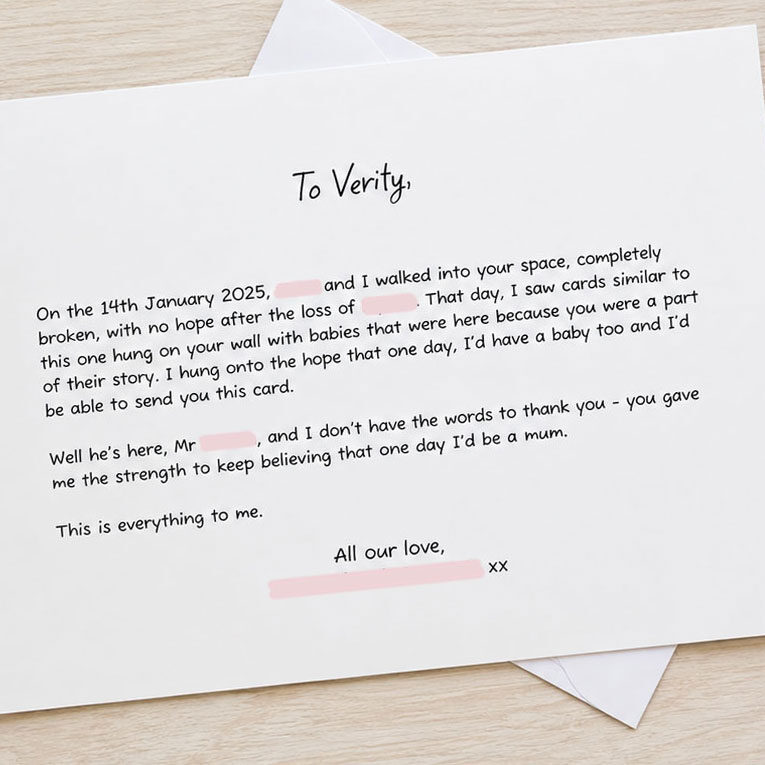 To Verity,
On the 14th January 2025, and I walked into your space, completely
broken, with no hope after the loss of . That day, I saw cards similar to
this one hung on your wall with babies that were here because you were a part
of their story. I hung onto the hope that one day, I'd have a baby too and I'd
be able to send you this card.
Well he's here, Mr , and I don't have the words to thank you - you gave
me the strength to keep believing that one day I'd be a mum.
This is everything to me.
All our love,
xx